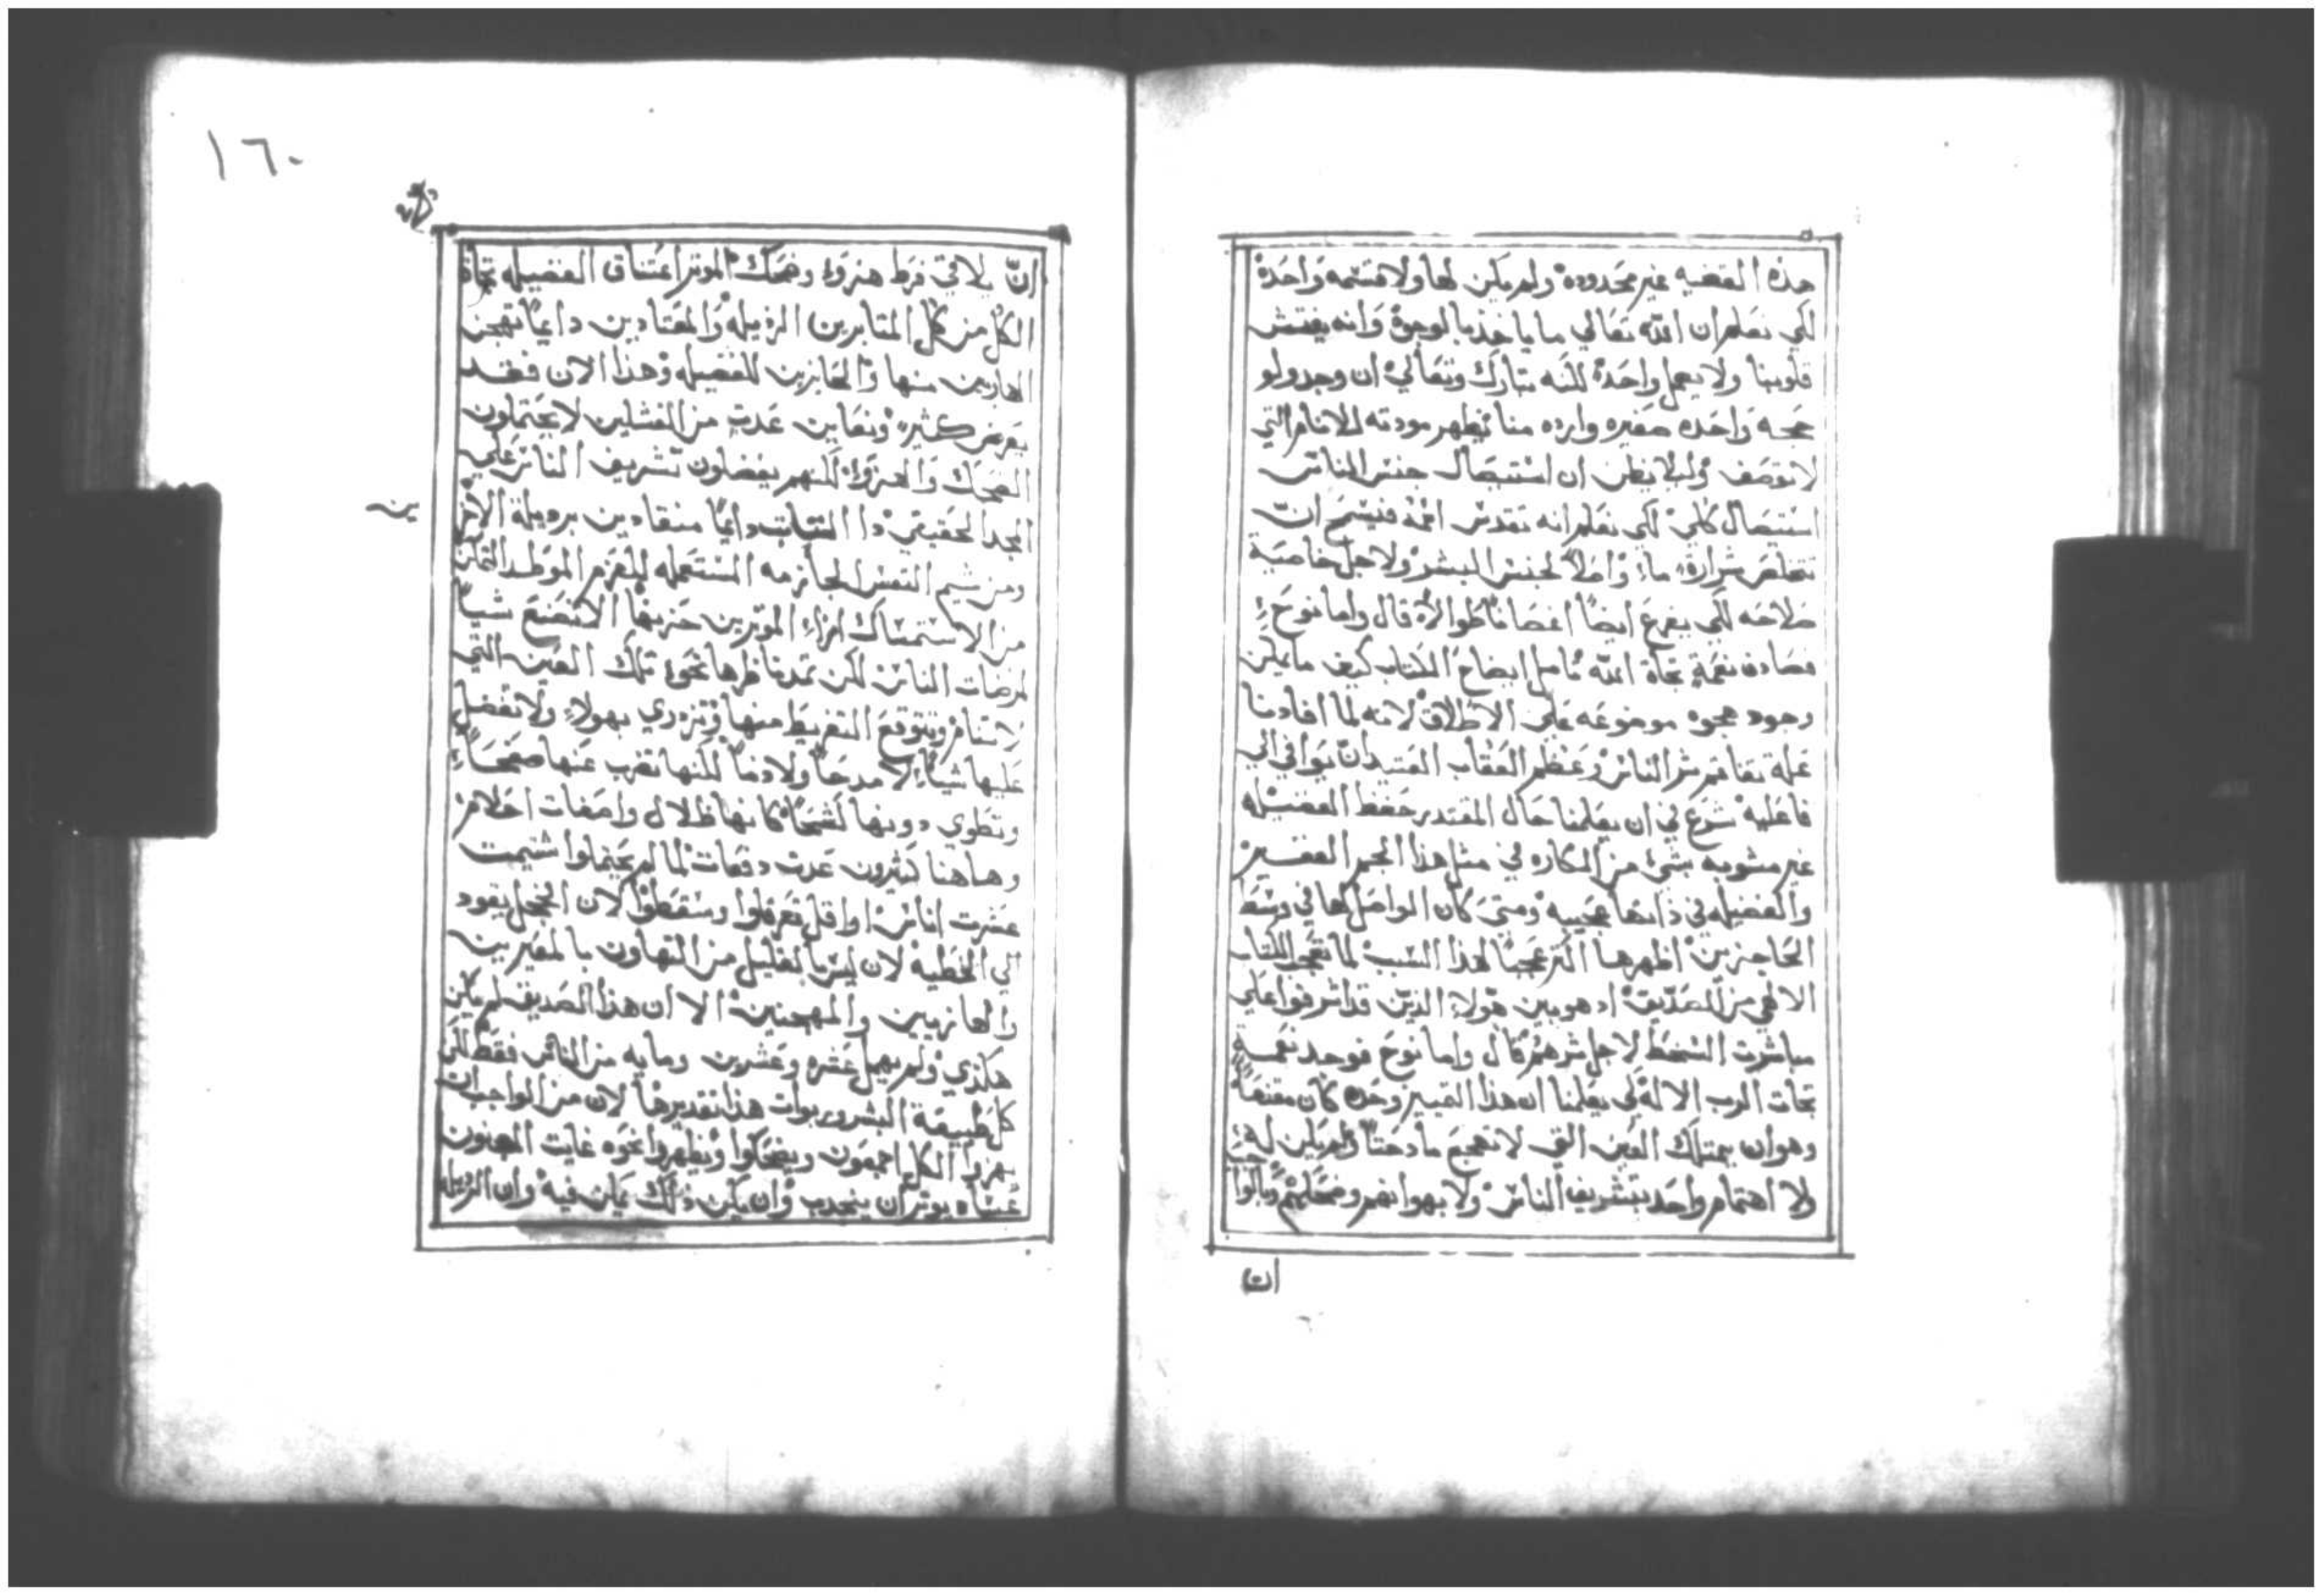 هذه القضيه غير محدوده ولم يكن لها ولا قسمه واحده
لكي نعلم ان الله تعالي ما ياخذ بالوجوه وانه يفتش
قلوبنا ولا يهمل واحده لكنه تبارك وتعالي ان وجد ولو
حجه واحده صغيره وارده منا يظهر مودته للانام التي
لا توصف وليلا يظن ان استيصال جنس الناس
استيصال كلي لكي نعلم انه تقدس اسمه فيسمح ان
تتخلص شرارة ما واصلاً لجنس البشر ولاجل خاصية
صلاحه لكي يفرع ايضاً اغصاناً طوالا قال واما نوح
فصادف نعمة تجاة الله تامل ايضاح الكتاب كيف ما يمكن
وجود هجوه موضوعه علي الاطلاق لانه لما افادنا
عمله تفاقم شر الناس وعظم العقاب العتيد ان يوافي الي
فاعليه شرع في ان يعلمنا حال المقتدر حفظ الفضيله
غير مشوبه بشي من المكاره في مثل هذا الجم الغفير
والفضيله في ذاتها عجيبه ومتي كان الواصل لها في وسط
الحاجزين اظهرها اكثر عجباً لهذا السبب لما تعجب الكتاب
الالهي من الصديق اذ هو بين هولا الذين قد اشرفوا علي
مباشرت السخط لاجل شرهم قال واما نوح فوجد نعمة
تجات الرب الاله لكي يعلمنا ان هذا التمييز وحده كان مقنعاً
وهو ان يمتلك العين التي لا تهجع مادحتاً ولم يكن له
ولا اهتمام واحد بتشريف الناس ولا بهوانهم وضحكهم
ان
١٦٠
ان يلاقي فرط هزو وضحك الموتر اعتناق الفضيله تجاة
الكل من كل المتابرين الرذيله والمعتادين دايماً تهجن
الهاربين منها والحايزين للفضيله وهذا الان فقد
يعرض كثيره ونعاين عدت من الفشلين لا يحتملون
الضحك والهزو لكنهم يفضلون تشريف الناس علي
المجد الحقيقي ذا الثبات دايماً منقادين برديلة
ومن شيم النفس الجازمه المستعمله للعزم الموطد
من الاستمساك ازاء الموترين حزنها الا تصنع شياً
لمرضات الناس لكن تمد ناظرها نحو تلك العين التي
لا تنام وتتوقع التقريظ منها وتزدري بهولاء ولا تفضل
عليها شياً لا مدحاً ولا ذماً لكنها تضرب عنها صفحاً
وتطوي دونها كشحاً كانها ظلال واضغات احلام
وهاهنا كثيرون عدت دفعات لما لم يحتملوا شتيمت
عشرت اناس او اقل تعرقلوا وسقطوا لان الخجل يقود
الي الخطيه لان ليس بالقليل من التهاون بالمعيرين
والهازيين والمهجنين الا ان هذا الصديق لم يكن
هكذي ولم يهمل عشره وعشرين ومايه من الناس فقط لكن
كل طبيعة البشر وربوات هذا تقديرها لان من الواجب ان
يهزوا الكل اجمعون ويضحكوا ويظهروا نحوه غايت الجنون
عساه يوتر ان ينجدب وان يكن ذلك يمكن فيه وان الرذيله